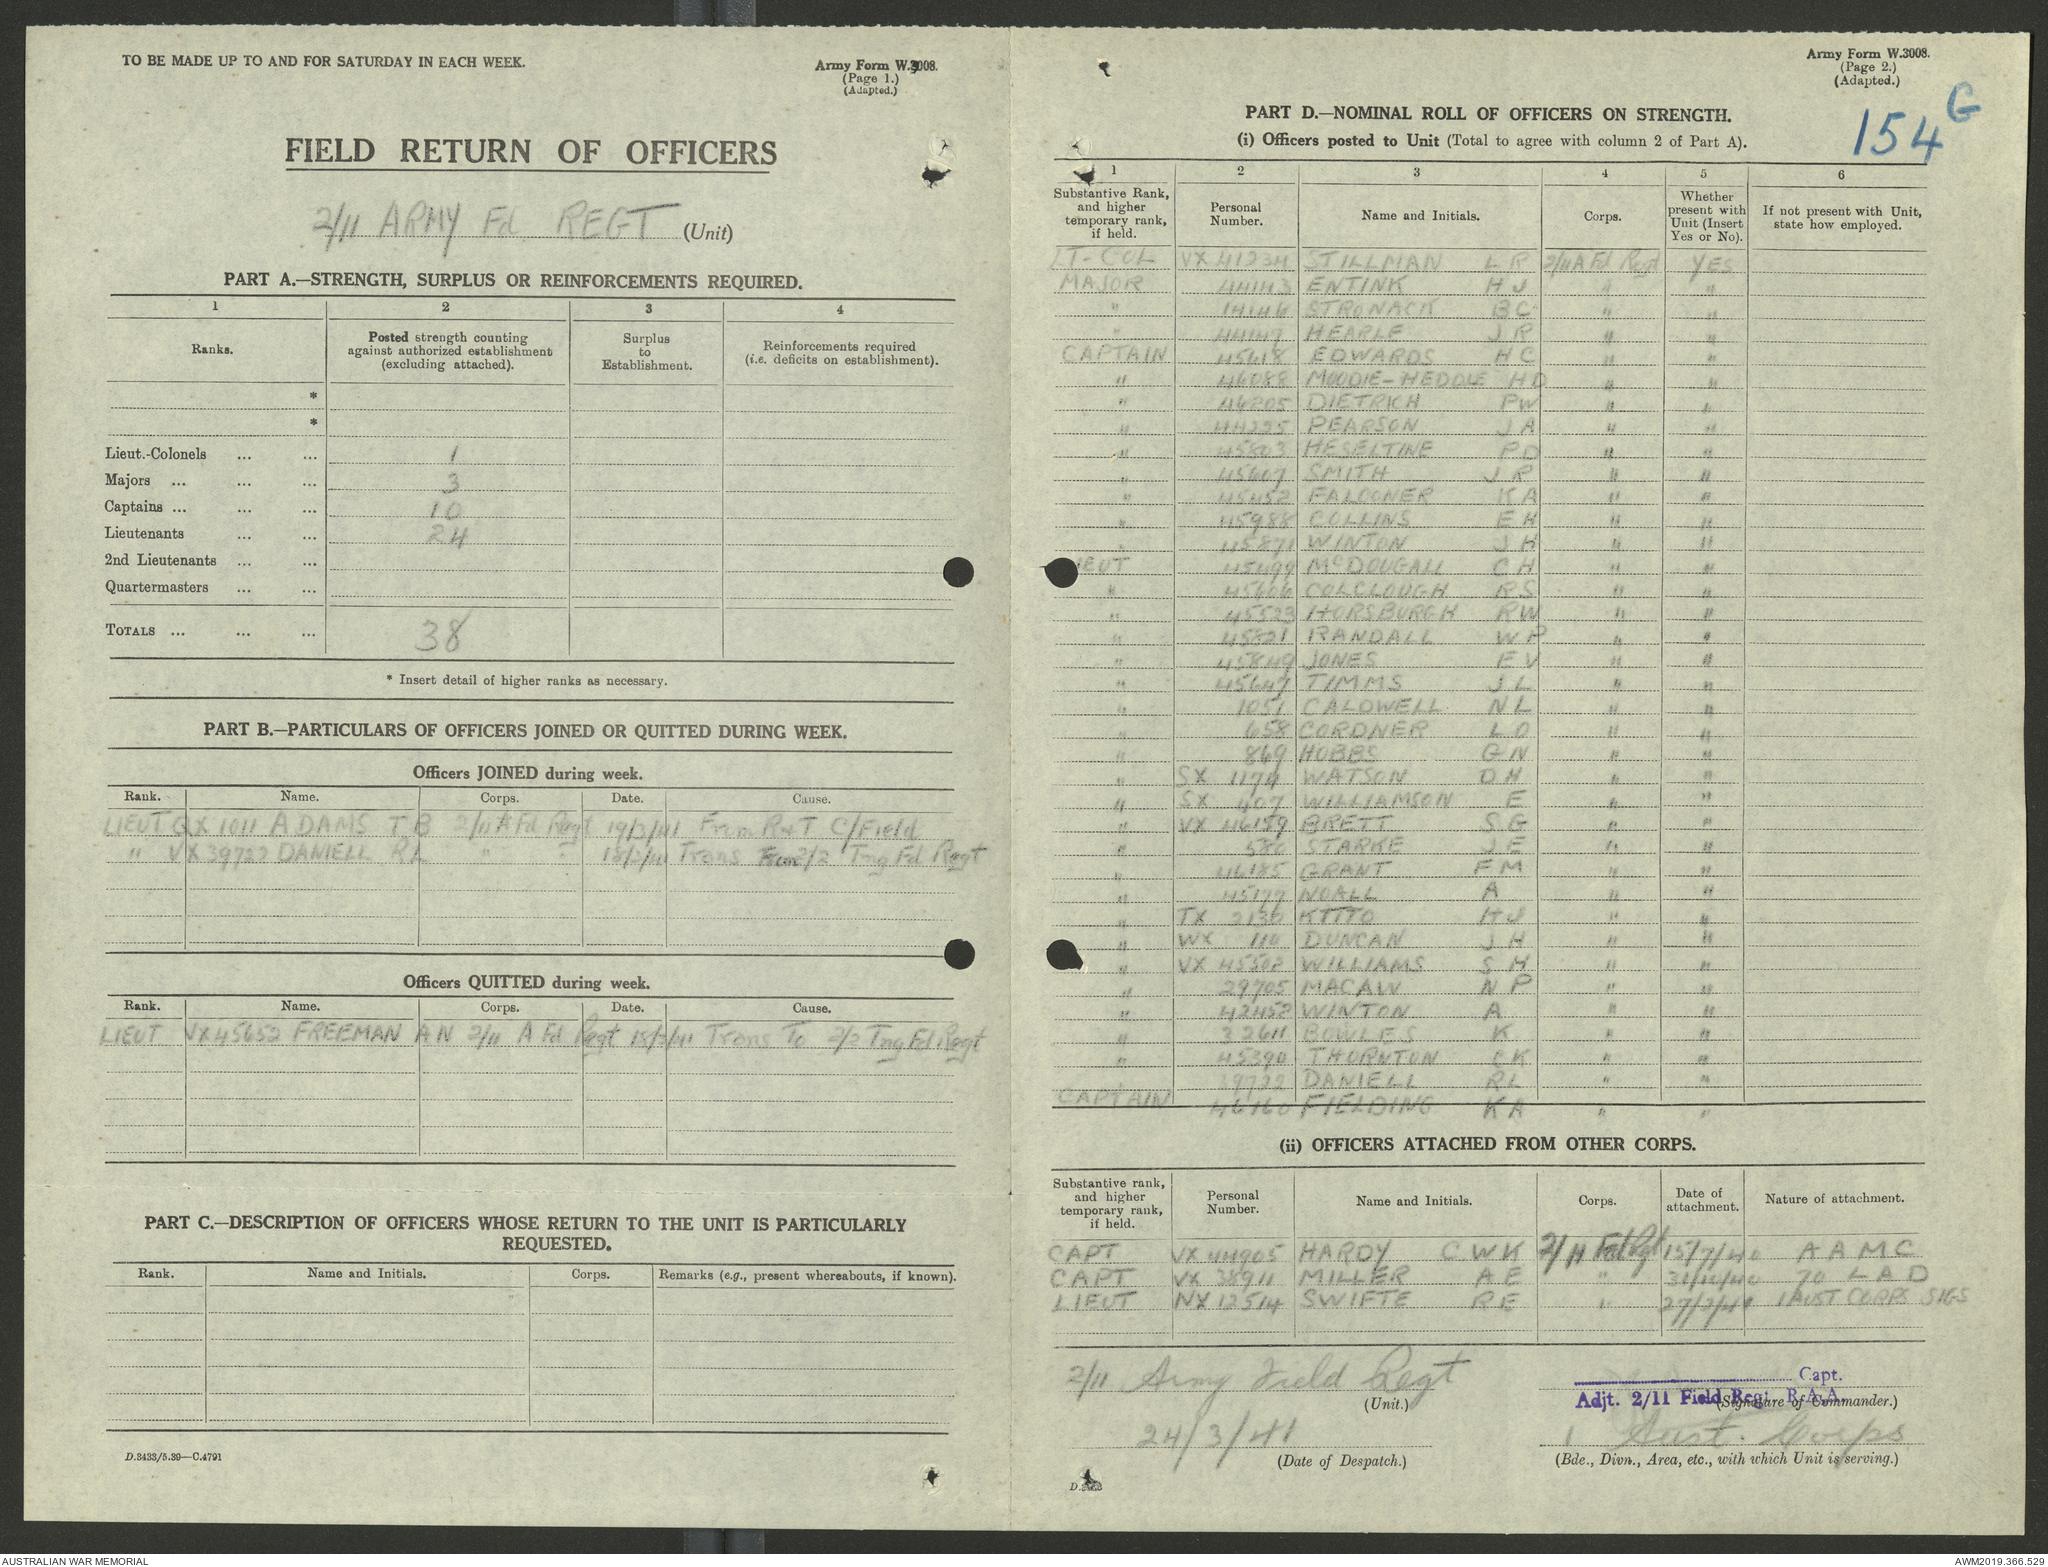 TO BE MADE UP TO AND FOR SATURDAY IN EACH WEEK.
Army Form W.3008.
(Page 1.)
(Adapted.)
FIELD RETURN OF OFFICERS
2/11 ARMY Fd REGT (Unit)
PART A.—STRENGTH, SURPLUS OR REINFORCEMENTS REQUIRED.
1 2 3 4
Ranks. Posted strength counting against authorized establishment (excluding attached). Surplus to Establishment. Reinforcements required (i.e. deficits on establishment).
*
*
Lieut.-Colonels ... ... 1
Majors ... ... ... 3
Captains ... ... ... 10
Lieutenants ... ... 24
2nd Lieutenants ... ...
Quartermasters ... ...
TOTALS ... ... ... 38
* Insert detail of higher ranks as necessary.
PART B.—PARTICULARS OF OFFICERS JOINED OR QUITTED DURING WEEK.
Officers JOINED during week.
Rank. Name. Corps. Date. Cause.
LIEUT QX 1011 ADAMS T B 2/11 A Fd Regt 19/3/41 From R & T C/Field
" VX 39722 DANIELL RL " " 18/3/41 Trans From 2/2 Tng Fd Regt
Officers QUITTED during week.
Rank. Name. Corps. Date. Cause.
LIEUT VX45652 FREEMAN A N 2/11 A Fd Regt 18/3/41 Trans To 2/2 Tng Fd Regt
PART C.—DESCRIPTION OF OFFICERS WHOSE RETURN TO THE UNIT IS PARTICULARLY
REQUESTED.
Rank. Name and Initials. Corps. Remarks (e.g., present whereabouts, if known).
D.3433/5.39—C.4791
Army Form W.3008.
(Page 2.)
(Adapted.)
154 G
PART D.—NOMINAL ROLL OF OFFICERS ON STRENGTH.
(i) Officers posted to Unit (Total to agree with column 2 of Part A).
1 2 3 4 5 6
Substantive Rank, and higher temporary rank, if held. Personal Number. Name and Initials. Corps. Whether present with Unit (Insert Yes or No). If not present with Unit, state how employed.
LT-COL VX 41234 STILLMAN L R 2/11 A Fd Regt YES
MAJOR 44143 ENTINK H J " "
" 14146 STRONACK B C " "
" 44147 HEARLE J R " "
CAPTAIN 45618 EDWARDS H C " "
" 46088 MOODIE-HEDDLE H D " "
" 46205 DIETRICH P W " "
" 44225 PEARSON J A " "
" 45803 HESELTINE P D " "
" 45607 SMITH J R " "
" 45452 FALCONER K A " "
" 45988 COLLINS E H " "
" 45871 WINTON J H " "
LIEUT 45499 McDOUGALL C H " "
" 45606 COLCLOUGH R S " "
" 45523 HORSBURGH R W " "
" 45821 RANDALL W P " "
" 45849 JONES E V " "
" 45647 TIMMS J L " "
" 1051 CALDWELL N L " "
" 658 CORDNER L O " "
" 869 HOBBS G N " "
" SX 1174 WATSON D H " "
" SX 407 WILLIAMSON E " "
" VX 46189 BRETT S G " "
" 580 STARKE J E " "
" 46185 GRANT F M " "
" 45177 NOALL A " "
" TX 2130 KITTO H J " "
" WX 110 DUNCAN J H " "
" VX 45502 WILLIAMS S H " "
" 29705 MACAW N P " "
" 42452 WINTON A " "
" 32611 BOWLES K " "
" 45390 THORNTON C K " "
39722 DANIELL RL " "
CAPTAIN 46160 FIELDING K A " "
(ii) OFFICERS ATTACHED FROM OTHER CORPS.
Substantive rank, and higher temporary rank, if held. Personal Number. Name and Initials. Corps. Date of attachment. Nature of attachment.
CAPT VX 44905 HARDY C W K 2/11 Fd Rgt 15/7/40 A A M C
CAPT VX 38911 MILLER A E " 31/10/40 70 L A D
LIEUT NX 12514 SWIFTE R E " 27/2/41 1 AUST CORPS SIGS
2/11 Army Field Regt
(Unit.)
24/3/41
(Date of Despatch.)
Capt.
Adjt. 2/11 Field Regt. R.A.A.
(Signature of Commander.)
1 Aust. Corps
(Bde., Divn., Area, etc., with which Unit is serving.)
AUSTRALIAN WAR MEMORIAL
AWM2019.366.529